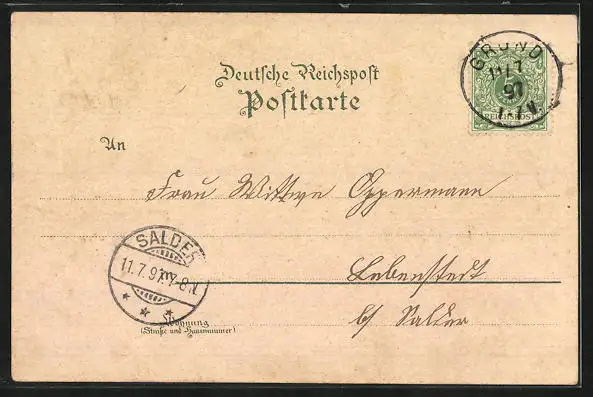 Deutsche Reichspost
Postkarte
GRUND
11/7
97
REICHSPOST
An
Frau Wittwe Oppermann
SALDER
11.7.97. 7-8 N.
in
Lebenstedt
b/ Salder
Wohnung
(Straße und Hausnummer)